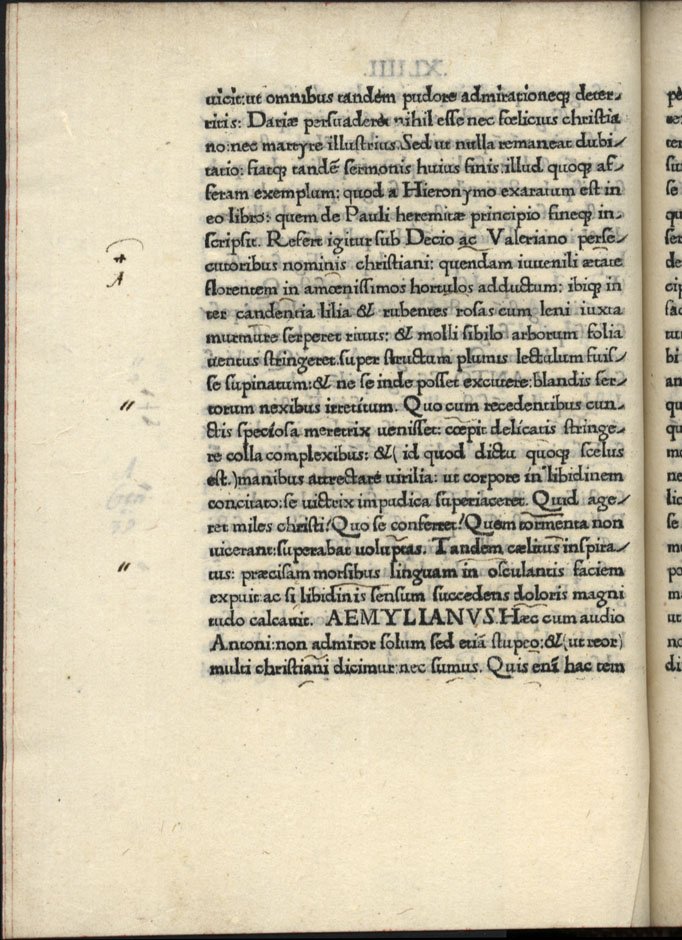 uicit:ut omnibus tandem pudore admirationeq; deter-
ritis: Dariæ persuaderet nihil esse nec fœlicius christia
no:nec martyre illustrius.Sed ut nulla remaneat dubi-
tatio: fiatq; tandē sermonis huius finis:illud quoq; af-
feram exemplum: quod a Hieronymo exaratum est in
eo libro: quem de Pauli heremitæ principio fineq; in-
scripsit. Refert igitur sub Decio ac Valeriano perse-
cutoribus nominis christiani: quendam iuuenili ætate
florentem in amœnissimos hortulos adductum: ibiq; in
ter candentia lilia & rubentes rosas cum leni iuxta
murmure serperet riuus: & molli sibilo arborum folia
uentus stringeret:super structum plumis lectulum fuis-
se supinatum:& ne se inde posset excutere:blandis ser-
torum nexibus irretitum. Quo cum recedentibus cun-
ctis speciosa meretrix uenisset: cœpit delicatis stringe-
re colla complexibus: &( id quod dictu quoq; scelus
est.)manibus attrectare uirilia: ut corpore in libidinem
concitato:se uictrix impudica superiaceret. Quid age-
ret miles christi?Quo se conferret?Quem tormenta non
uicerant:superabat uoluptas. Tandem cælitus inspira-
tus: præcisam morsibus linguam in osculantis faciem
expuit:ac si libidinis sensum succedens doloris magni
tudo calcauit. AEMYLIANVS.Hæc cum audio
Antoni:non admiror solum sed etiā stupeo:&(ut reor)
multi christiani dicimur nec sumus. Quis enī hac tem